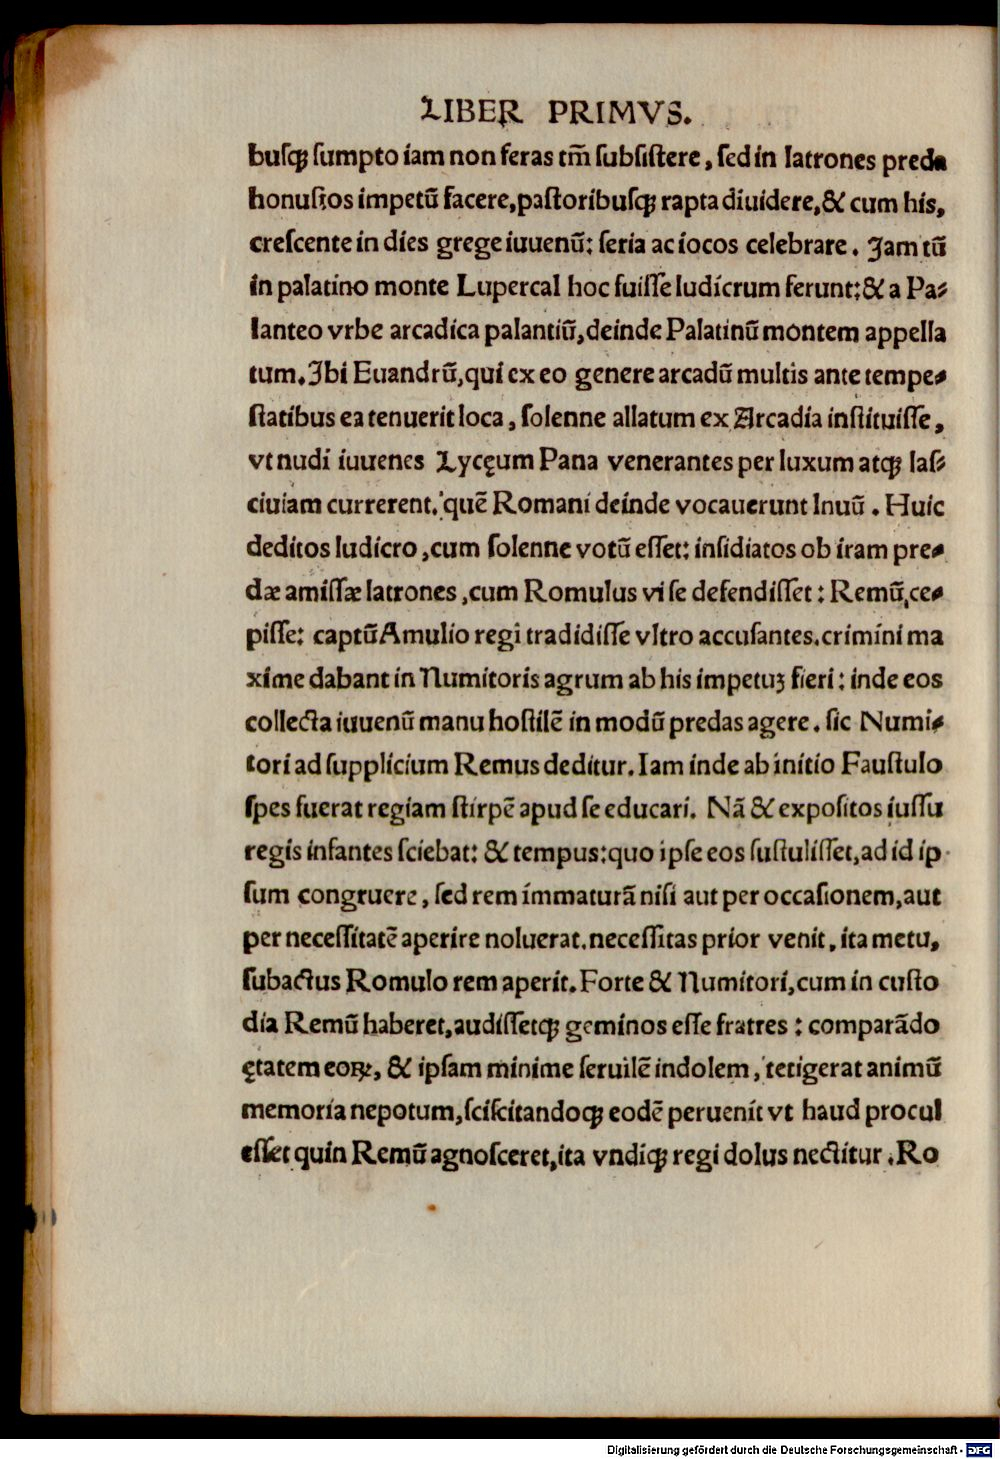 LIBER PRIMVS.
buſqꝫ ſumpto iam non feras tm̄ ſubsiſtere, ſed in latrones preda
honuſtos impetū facere, paſtoribuſqꝫ rapta diuidere, & cum his,
creſcente in dies grege iuuenū: ſeria ac iocos celebrare. Iam tū
in palatino monte Lupercal hoc fuiſſe ludicrum ferunt: & a Pa⸗
lanteo vrbe arcadica palantiū, deinde Palatinū montem appella
tum. Ibi Euandrū, qui ex eo genere arcadū multis ante tempe⸗
ſtatibus ea tenuerit loca, ſolenne allatum ex Arcadia inſtituiſſe,
vt nudi iuuenes Lycęum Pana venerantes per luxum atqꝫ laſ⸗
ciuiam currerent. quē Romani deinde vocauerunt Inuū. Huic
deditos ludicro, cum ſolenne votū eſſet: inſidiatos ob iram pre⸗
dæ amiſſæ latrones, cum Romulus vi ſe defendiſſet: Remū, ce⸗
piſſe: captū Amulio regi tradidiſſe vltro accuſantes. crimini ma
xime dabant in Numitoris agrum ab his impetuꝫ fieri: inde eos
collecta iuuenū manu hoſtilē in modū predas agere. ſic Numi⸗
tori ad ſupplicium Remus deditur. Iam inde ab initio Fauſtulo
ſpes fuerat regiam ſtirpē apud ſe educari. Nā & expoſitos iuſſu
regis infantes ſciebat: & tempus: quo ipſe eos ſuſtuliſſet, ad id ip
ſum congruere, ſed rem immaturā niſi aut per occaſionem, aut
per neceſſitatē aperire noluerat. neceſſitas prior venit, ita metu,
ſubactus Romulo rem aperit. Forte & Numitori, cum in cuſto
dia Remū haberet, audiſſetqꝫ geminos eſſe fratres: comparādo
ętatem eoꝝ, & ipſam minime ſeruilē indolem, tetigerat animū
memoria nepotum, ſciſcitandoqꝫ eodē peruenit vt haud procul
eſſet quin Remū agnoſceret, ita vndiqꝫ regi dolus nectitur. Ro
Digitalisierung gefördert durch die Deutsche Forschungsgemeinschaft - DFG